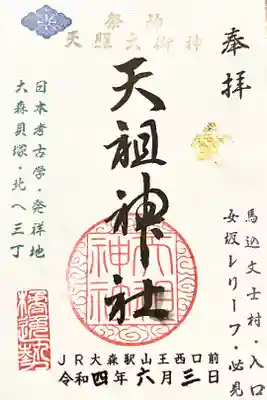 奉拝
馬込文士村・入口
女坂レリーフ・必見
祭神
天照大御神
天祖神社
日本考古学・発祥地
大森貝塚・北へ三丁
JR大森駅山王西口前
令和四年六月三日